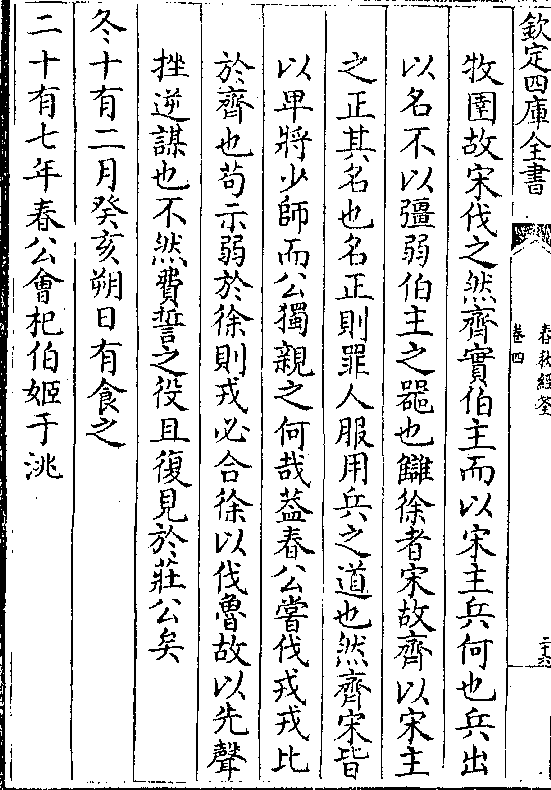 欽定四庫全書
春秋經筌
卷四
二十六
牧圉故宋伐之然齊實伯主而以宋主兵何也兵出
以名不以彊弱伯主之器也讎徐者宋故齊以宋主
之正其名也名正則罪人服用兵之道也然齊宋皆
以卑將少師而公獨親之何哉葢春公嘗伐戎戎比
於齊也茍示弱於徐則戎必合徐以伐魯故以先聲
挫逆謀也不然費誓之役且復見於莊公矣
冬十有二月癸亥朔日有食之
二十有七年春公會杞伯姬于洮